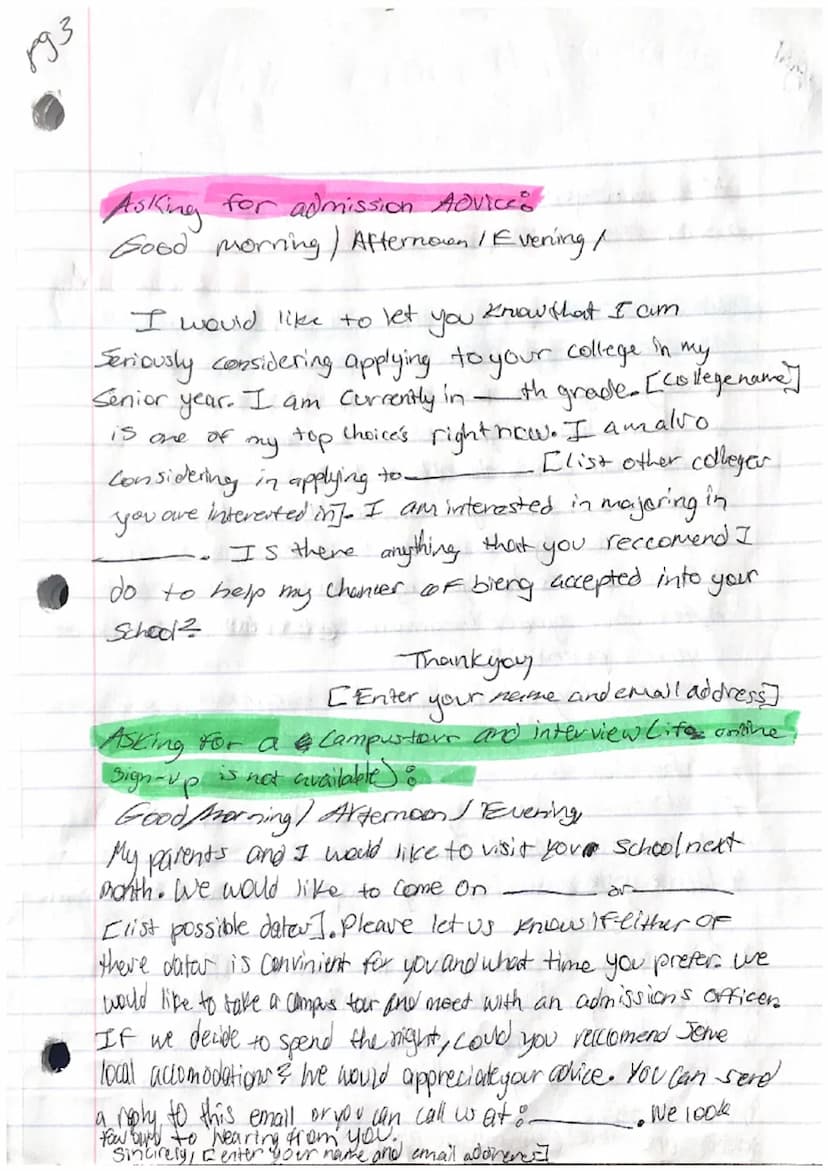 pg 3
Asking for admission Advice:
Good morning / Afternoon / Evening /
I would like to let you know that I am
Seriously considering applying to your college in my
Senior year. I am currently in ___th grade. [College name]
is one of my top choice's right now. I am also
considering in applying to ______ [list other colleges
you are interested in]. I am interested in majoring in
______. Is there anything that you reccomend I
do to help my chances of bieng accepted into your
School?
Thank you,
[Enter your name and email address]
Asking for a campus tour and interview (if online
sign-up is not available):
Good Morning / Afternoon / Evening,
My parents and I would like to visit your school next
month. We would like to come on ______ or ______
[list possible dates]. Please let us know if either of
these dates is convinient for you and what time you prefer. We
would like to take a campus tour and meet with an admissions officer.
If we decide to spend the night, could you reccomend some
local accomodations? We would appreciate your advice. You can send
a reply to this email or you can call us at: ______. We look
forward to hearing from you.
Sincirely, [enter your name and email address]